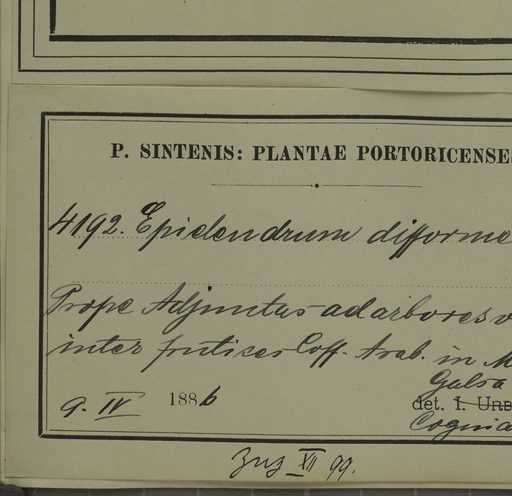 P. SINTENIS: PLANTAE PORTORICENSE
4192. Epidendrum difforme
Prope Adjuntas ad arbores
inter frutices Coff. Arab. in M
Galsa
9. IV 1886 det. I. URB
Cognia
XII 99.